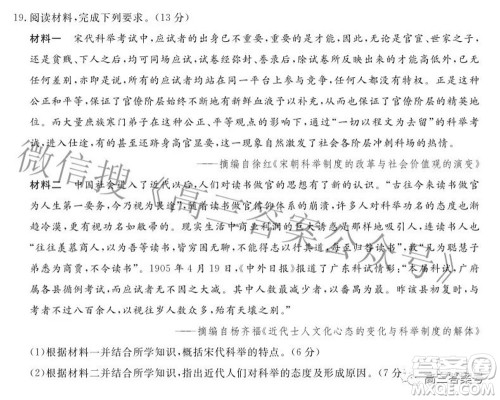 19.阅读材料,完成下列要求。(13分)
材料一 宋代科举考试中,应试者的出身已不重要,重要的是其才能,因此,无论是官宦、世家之子,还是贫贱、下人之后,均可同场应试,试卷经弥封、誊录后,除试卷所反映出来的才能高低外,不再有任何差别,亦即是说,所有的应试者均在同一平台上参与竞争,任何人都没有特权。正是这种公正和平等,保证了官僚阶层始终不断地有新鲜血液予以补充,从而保证了官僚阶层的精英地位。而大量庶族寒门子弟在这种公正、平等观念的影响下,通过"一切以程文为去留"的科举考试,进入仕途,有的甚至还跻身高官显要,这一现象自然激发了社会各阶层对科举的热情。
——摘编自徐红《宋朝科举制度的改革与社会价值观的演变》
材料二 中国社会进入了近代以后,时人对读书做官的思想有了新的认识。"古往今来读书做官为人生第一要务,今乃视为畏途",随着读书做官信仰体系的崩溃,许多人对科举考试的态度也渐趋冷漠,更有甚者出现了鄙夷的情绪。现实生活中商业利润的巨大诱惑是那样地吸引人,连"往年之羡慕商人,以为吾等读书皆穷困无聊,不能得志以行其道,每至归咎读书",我"凡为聪慧子弟悉为商贾,不令读书"。1905年4月19日,《中外日报》报道了广东科试情形:"本届科试,广府属各县报考者异常寥落,向之每县二三千人者,今则多至七八百人。昨试该县初复时,与考者不及百人,较之从前岁考人数,殆有天壤之别。"
——摘编自杨齐福《近代士人文化心态的变化与科举制度的解体》
(1)根据材料一并结合所学知识,概括宋代科举的特点。(6分)
(2)根据材料二并结合所学知识,指出近代人们对科举的态度及形成原因。(7分
微信搜《高三答案公众号》
高三答案号